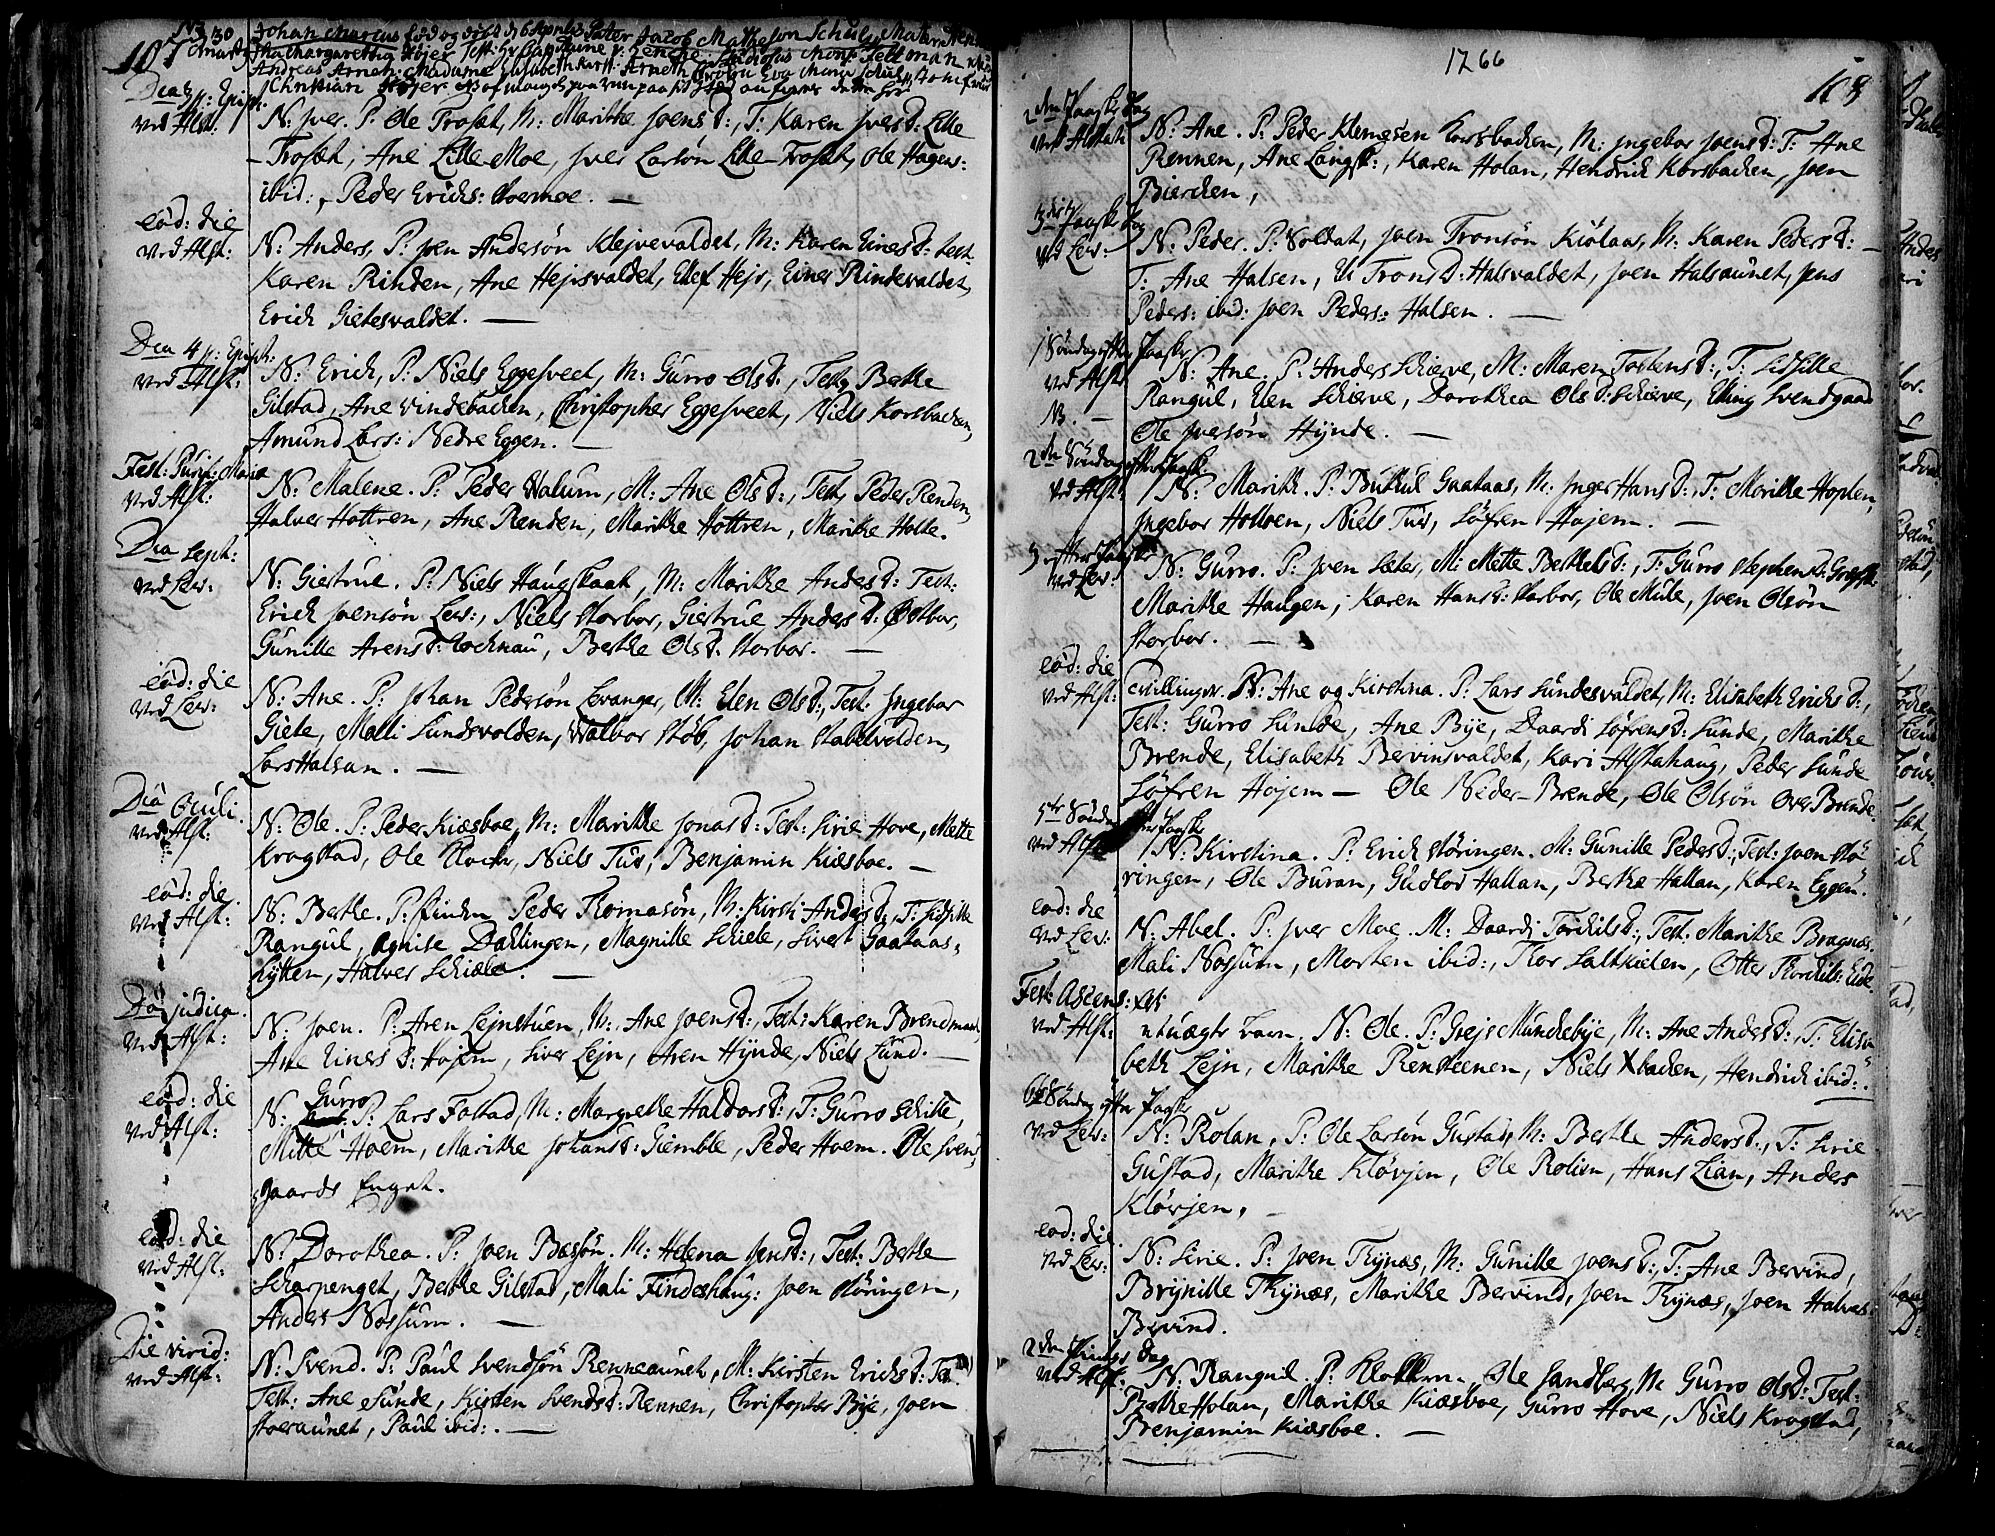 107
Johan Marcus født og døbt d 6 Aprilis Pater Jacob Mathesøn Schult Mater
Andreas Arnet: Madame Elisabeth
Christian Højer
Dca 3 p: Epiph.
ved Alst:
N: Iver. P: Ole Trosæt, M: Marithe Joens D:, T: Karen Ivers D: Lille
Trosæt, Ane Lille Moe, Iver Larsøn Lille Trosæt, Ole Hagens:
ibid:, Peder Erichs: Stoermoe. —
eod: die
ved Alst:
N: Anders, P: Joen Andersøn Klejvevaldet, M: Karen Eines D: Test.
Karen Rinden, Ane Hejisvaldet, Ellef Hejr, Einer Rindevaldet,
Erich Gietesvaldet. —
Dca 4 p: Epiph:
ved Alst:
N: Erich, P: Niels Eggesveet, M: Gurro Ols D:, Test: Bethe
Gilstad, Ane Vindebachen, Christopher Eggesveet, Niels Korsbachen,
Amund Lars: Nedre Eggen. —
Fest: Purif: Mariæ
ved Alst:
N: Malene. P: Peder Walum, M: Ane Ols D:, Test: Peder Renden,
Halver Hottren, Ane Renden, Marithe Hottren, Marithe Holte.
Dca Sept:
ved Lev:
N: Giertrue. P: Niels Haugskaat, M: Marithe Anders D: Test:
Erich Joensøn Lev:, Niels Storbor, Giertrue Anders D: Østbor,
Gunille Arens D: Kochnau, Berthe Ols D. Storbor. —
eod: die
ved Lev:
N: Ane. P: Johan Pedersøn Levanger, M: Elen Ols D:, Test: Ingebor
Giete, Malli Sundsvolden, Walbor Støb, Johan Stabelvolden,
Lars Halsan. —
Dca Oculi.
ved Alst:
N: Ole. P: Peder Kiæsboe, M: Marithe Jonas D: Test: Sirie Hove, Mette
Krogstad, Ole Kloch, Niels Tus, Benjamin Kiæsboe. —
eod: die
ved Alst:
N: Berthe. P: Peder Thomasøn, M: Kirsti Anders D, T: Sidsille
Rangul, Agnise Dahlingen, Magnille Schiele, Sivert Gaataas-
hytten, Halver Schiæle. —
Dca Judica.
ved Alst:
N: Joen. P: Aren Lejnstuen, M: Ane Joens D:, Test: Karen Brendmark,
Ane Einers D: Hojem, Siver Lejn, Aren Hÿnde, Niels Lund. —
eod: die
ved Alst:
N: Gurro P: Lars Fostad, M: Margrethe Haldors D:, T: Gurro Schitte,
Mitte Hoem, Marithe Johans D: Giemble, Peder Hoem. Ole Sven-
gaards Enget.
eod: die
ved Alst:
N: Dorothea. P: Joen Bassøn. M: Helena Jens D:, Test: Berthe
Scharpenget, Berthe Gilstad, Mali Findeshaug: Joen Støringen,
Anders Nossum. —
Die virid:
ved Alst:
N: Svend. P: Paul Svendsøn Renneaunet, M: Kirsten Erichs D:
Test: Ane Sunde, Kirsten Svends D: Rennen, Christopher Bÿe, Joen
Stoeraunet, Paul ibid:. —
1766
108
2den Paaske Dag
ved Alstah
N: Ane. P: Peder Klemesen Korsbachen, M: Ingebor Joens D: T: Ane
Rennen, Ane Langsk:, Karen Holan, Hendrich Korsbachen, Joen
Bierchen,
3die Paaske Dag
ved Lev:
N: Peder. P: Soldat, Joen Tronsøn Kiølaas, M: Karen Peders D: —
T: Ane Halsen, Eli Trons D: Halsvaldet, Joen Halsaunet, Jens
Peders: ibid: Joen Peders: Halsen. —
1 Søndag efter Paaske
ved Alst:
N. —
N: Ane. P: Anders Schierve, M: Maren Torstens D:, T: Sidsille
Rangul, Elen Schierve, Dorothea Ols D: Schierve, Elling Svendgaard
Ole Iversøn Hÿnde. —
2den Søndag efter Paaske
ved Alst:
N: Marith. P: Buthul Gaataas, M: Inger Hans D:, T: Marithe Hoplen,
Ingebor Holloen, Niels Tus, Søfren Hojem. —
3 efter Paaske
ved Lev:
N: Gurro. P: Joen Sæter, M: Mette Berthels D:, T: Gurro Stephens D:
Marithe Haugen, Karen Hans D: Storbor, Ole Mule, Joen Olsøn
Storbor. —
eod: die
ved Alst:
tvillinger. N: Ane og Kirstina. P: Lars Sundesvaldet, M: Elisabeth Erichs D:,
Test: Gurro Sunde, Ane Bÿe, Daardi Søfrens D: Sunde, Marithe
Brende, Elisabeth Bervinsvaldet, Kari Alstahaug, Peder Sunde
Søfren Hojem — Ole Neder-Brende, Ole Olsøn Over Brende.
5te Søndag efter Paaske
ved Alst:
N: Kirstina. P: Erich Støringen. M: Gunille Peders D:, Test: Joen Stø-
ringen, Ole Buran, Gudlov Hallan, Berthe Hallan, Karen Eggen.
eod: die
ved Lev:
N: Abel. P: Iver Moe. M: Daardi Torchils D:, Test: Marithe Bragnæs.
Mali Nossum, Morten ibid:, Thor Saltkielen, Otter Thorchils: Eide.
Fest: Ascens: xsti
ved Alst:
uægte barn. N: Ole. P: Grejs Mundebÿe, M: Ane Anders D:, T: Elisa-
beth Lejn, Marithe Rensteenen, Niels Xbachen, Hendrich ibid:.
6te Søndag efter Paaske
ved Lev:
N: Rolan, P: Ole Larsøn Gustad, M: Berthe Anders D:, T: Sirie
Gustad, Marithe Kløvjen, Ole Rolien, Hans Lian, Anders
Kløvjen, —
eod: die.
ved Lev:
N: Sirie. P: Joen Thÿnæs, M: Gunille Joens D:, T: Ane Bervind,
Brÿnille Thÿnæs, Marithe Bervind, Joen Thÿnæs, Joen Halvers
Bervind.
2den Pintse Dag
ved Alst:
N: Rangul. P: Klokkern Ole Sandberg, M: Gurro Ols D: Test:
Berthe Holan, Marithe Kiæsboe, Gurro Hove, Niels Krogstad,
Benjamin Kiæsboe. —